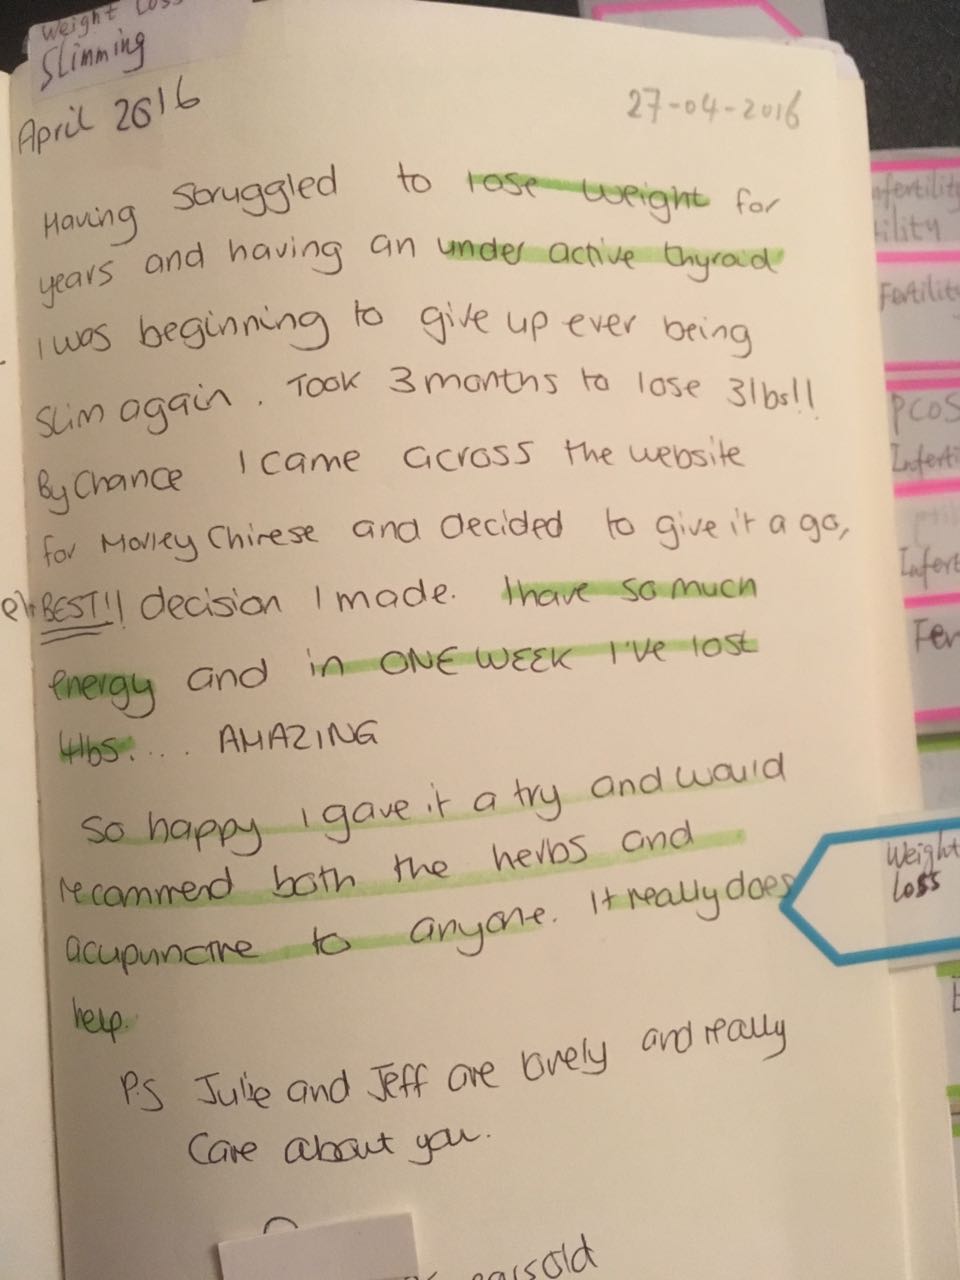 Weight Loss
Slimming
April 2016
27-04-2016
Having struggled to lose weight for
years and having an under active thyroid
I was beginning to give up ever being
slim again. Took 3 months to lose 3lbs!!
By chance I came across the website
for Morley Chinese and decided to give it a go,
BEST!! decision I made. I have so much
energy and in ONE WEEK I've lost
4lbs.... AMAZING
So happy I gave it a try and would
recommend both the herbs and
acupunctre to anyone. It really does
help.
P.S Julie and Jeff are lovely and really
care about you.
old
nfertility
ility
Fertility
PCOS
Inferti
Infert
Fer
Weight
Loss